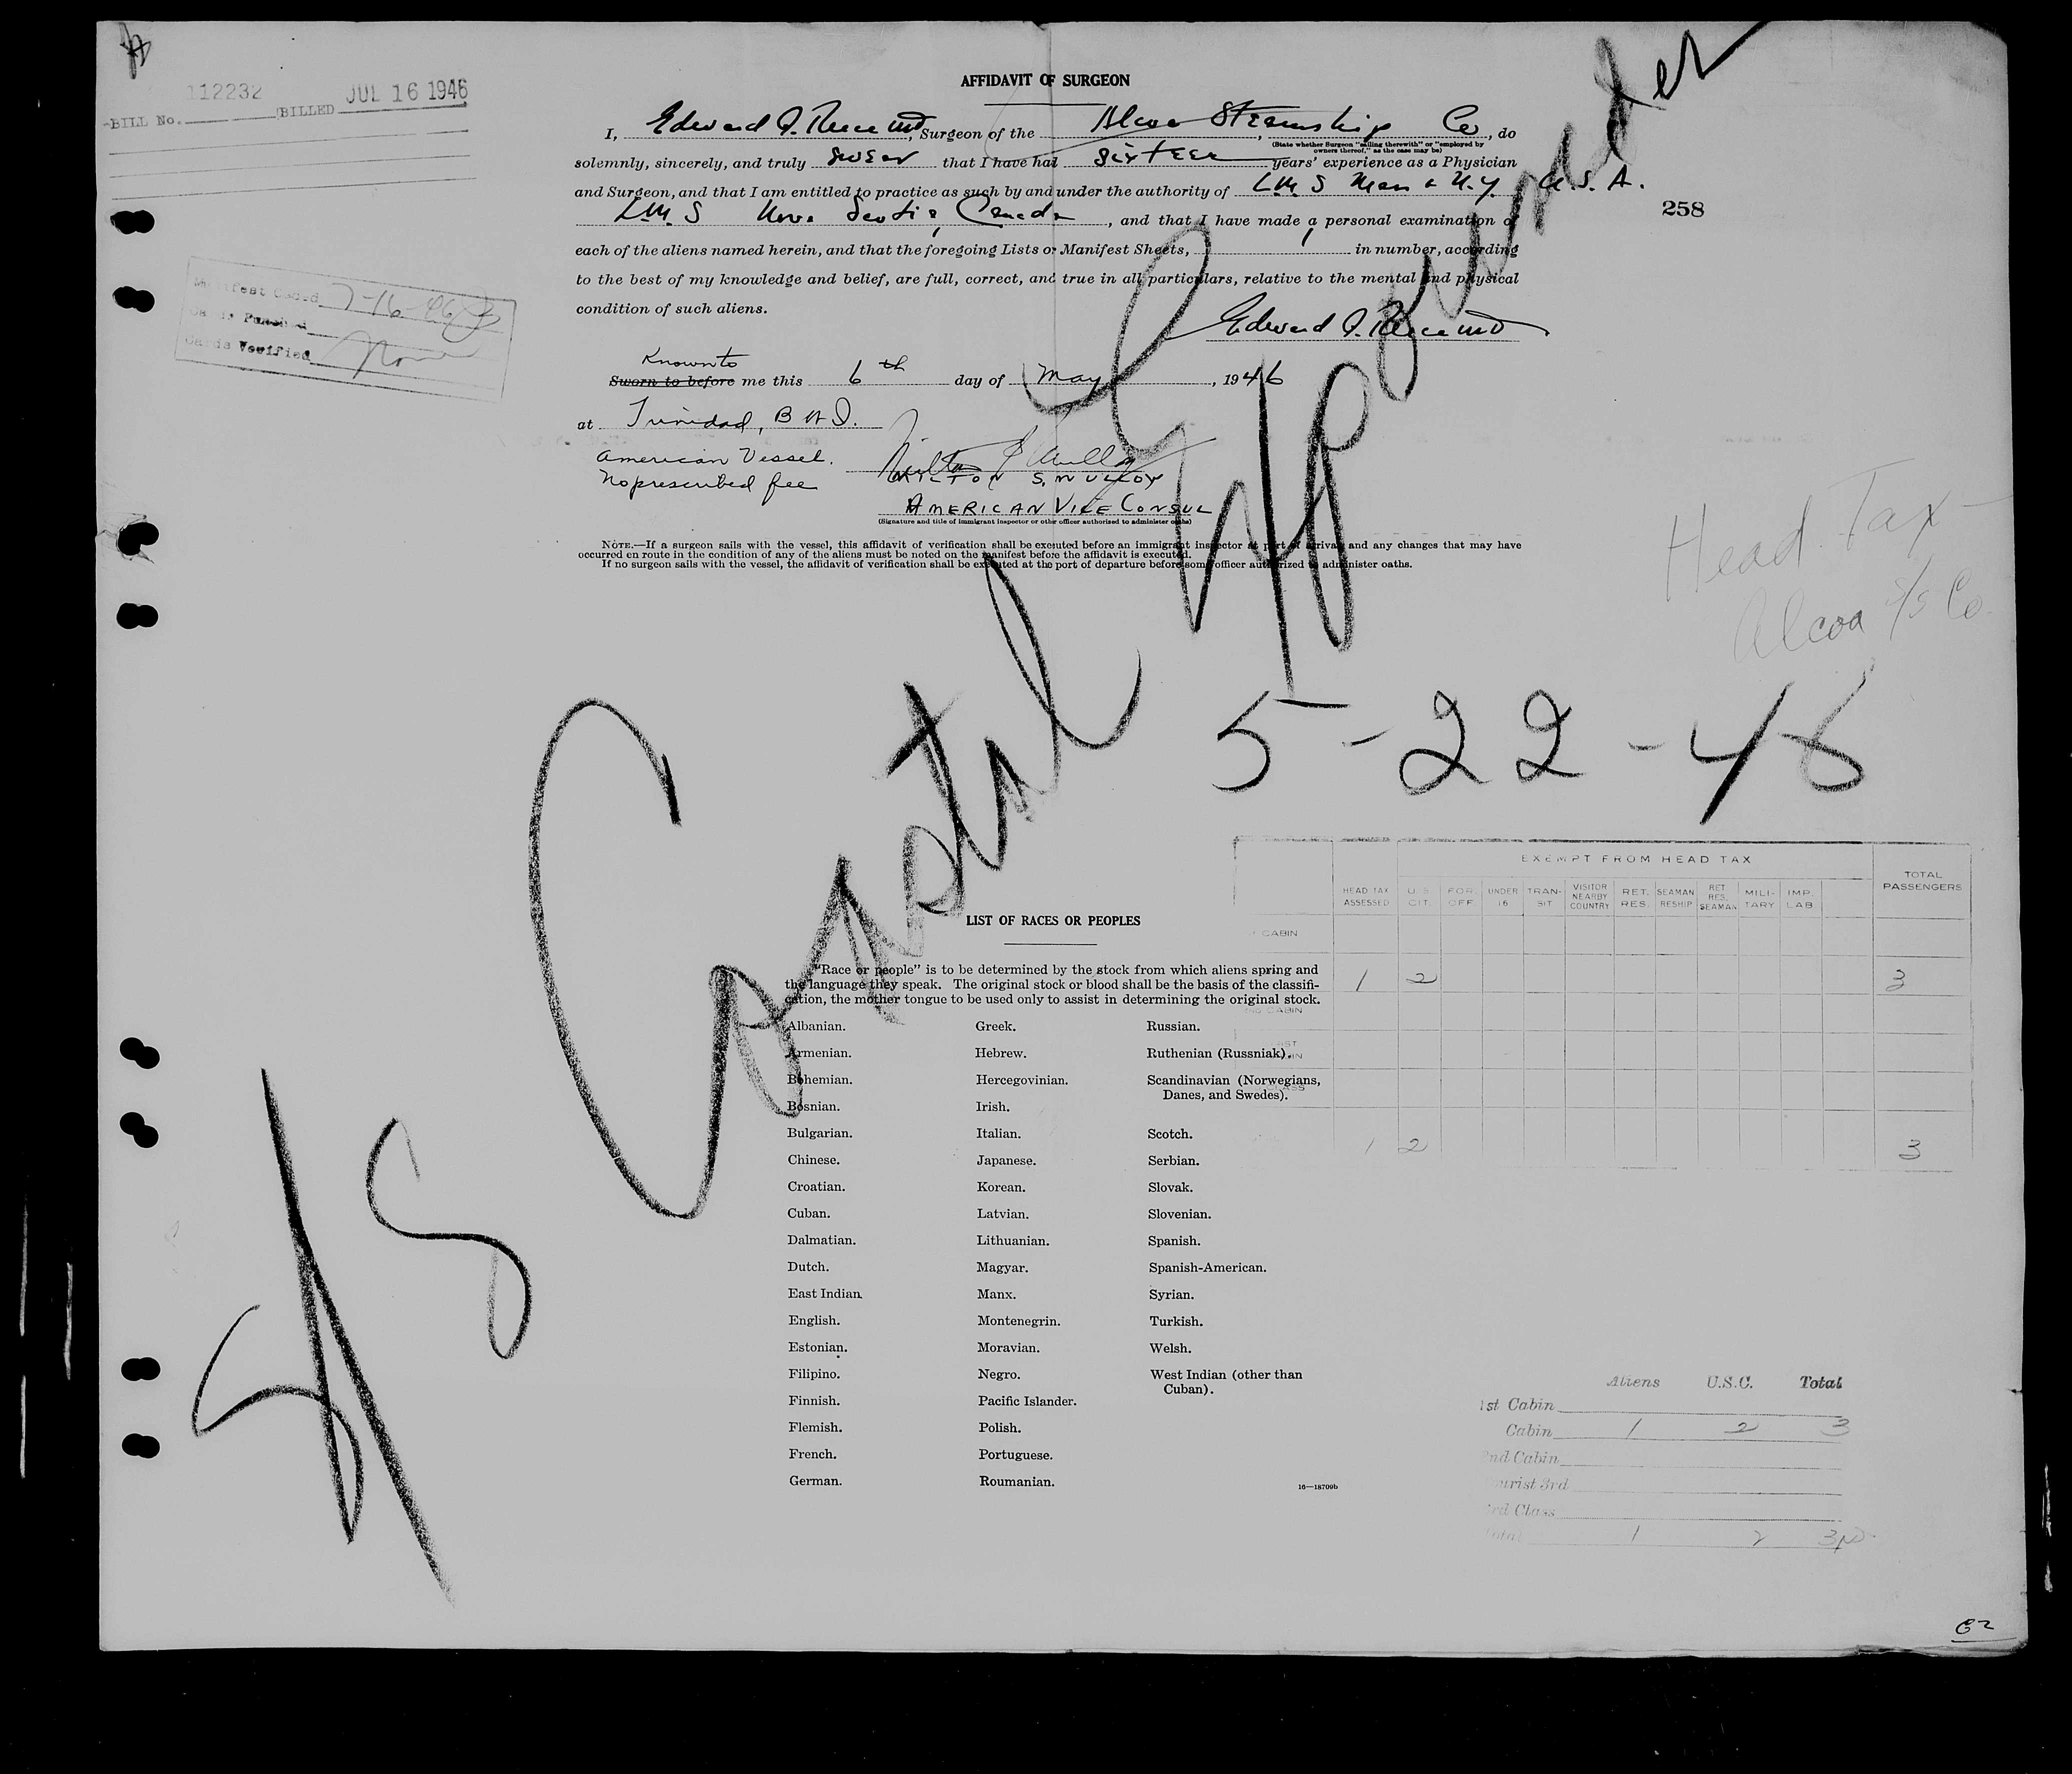 112232
BILL No. BILLED JUL 16 1946
AFFIDAVIT OF SURGEON
I, Edward Surgeon of the Alcoa Steamship Co, do
(State whether Surgeon "sailing therewith" or "employed by
owners thereof," as the case may be)
solemnly, sincerely, and truly swear that I have had sixteen years' experience as a Physician
and Surgeon, and that I am entitled to practice as such by and under the authority of LMS & N.Y. U.S.A.
258
LMS Nova Scotia, Canada, and that I have made a personal examination of
each of the aliens named herein, and that the foregoing Lists or Manifest Sheets, 1 in number, according
to the best of my knowledge and belief, are full, correct, and true in all particulars, relative to the mental and physical
condition of such aliens.
Edward
Manifest Coded 7-16-46
Cards Punched
Cards Verified None
Known to
Sworn to before me this 6th day of May, 1946
at Trinidad, B W I.
American Vessel.
No prescribed fee
MILTON S. MULLOY
AMERICAN VICE CONSUL
(Signature and title of immigrant inspector or other officer authorized to administer oaths)
NOTE.—If a surgeon sails with the vessel, this affidavit of verification shall be executed before an immigrant inspector at port of arrival and any changes that may have
occurred en route in the condition of any of the aliens must be noted on the manifest before the affidavit is executed.
If no surgeon sails with the vessel, the affidavit of verification shall be executed at the port of departure before some officer authorized to administer oaths.
Head Tax
Alcoa S/S Co.
S/S Coastal
5-22-46
EXEMPT FROM HEAD TAX
HEAD TAX ASSESSED U S CIT. FOR OFF. UNDER 16 TRAN- SIT VISITOR NEARBY COUNTRY RET. RES. SEAMAN RESHIP RET RES. SEAMAN MILI- TARY IMP. LAB TOTAL PASSENGERS
CABIN
1 2 3
2ND CABIN
1 2 3
LIST OF RACES OR PEOPLES
"Race or people" is to be determined by the stock from which aliens spring and
the language they speak. The original stock or blood shall be the basis of the classifi-
cation, the mother tongue to be used only to assist in determining the original stock.
Albanian. Greek. Russian.
Armenian. Hebrew. Ruthenian (Russniak).
Bohemian. Hercegovinian. Scandinavian (Norwegians,
Danes, and Swedes).
Bosnian. Irish.
Bulgarian. Italian. Scotch.
Chinese. Japanese. Serbian.
Croatian. Korean. Slovak.
Cuban. Latvian. Slovenian.
Dalmatian. Lithuanian. Spanish.
Dutch. Magyar. Spanish-American.
East Indian. Manx. Syrian.
English. Montenegrin. Turkish.
Estonian. Moravian. Welsh.
Filipino. Negro. West Indian (other than
Cuban).
Finnish. Pacific Islander.
Flemish. Polish.
French. Portuguese.
German. Roumanian.
16—18709b
Aliens U.S.C. Total
1st Cabin
Cabin 1 2 3
2nd Cabin
Tourist 3rd
3rd Class
Total 1 2 3